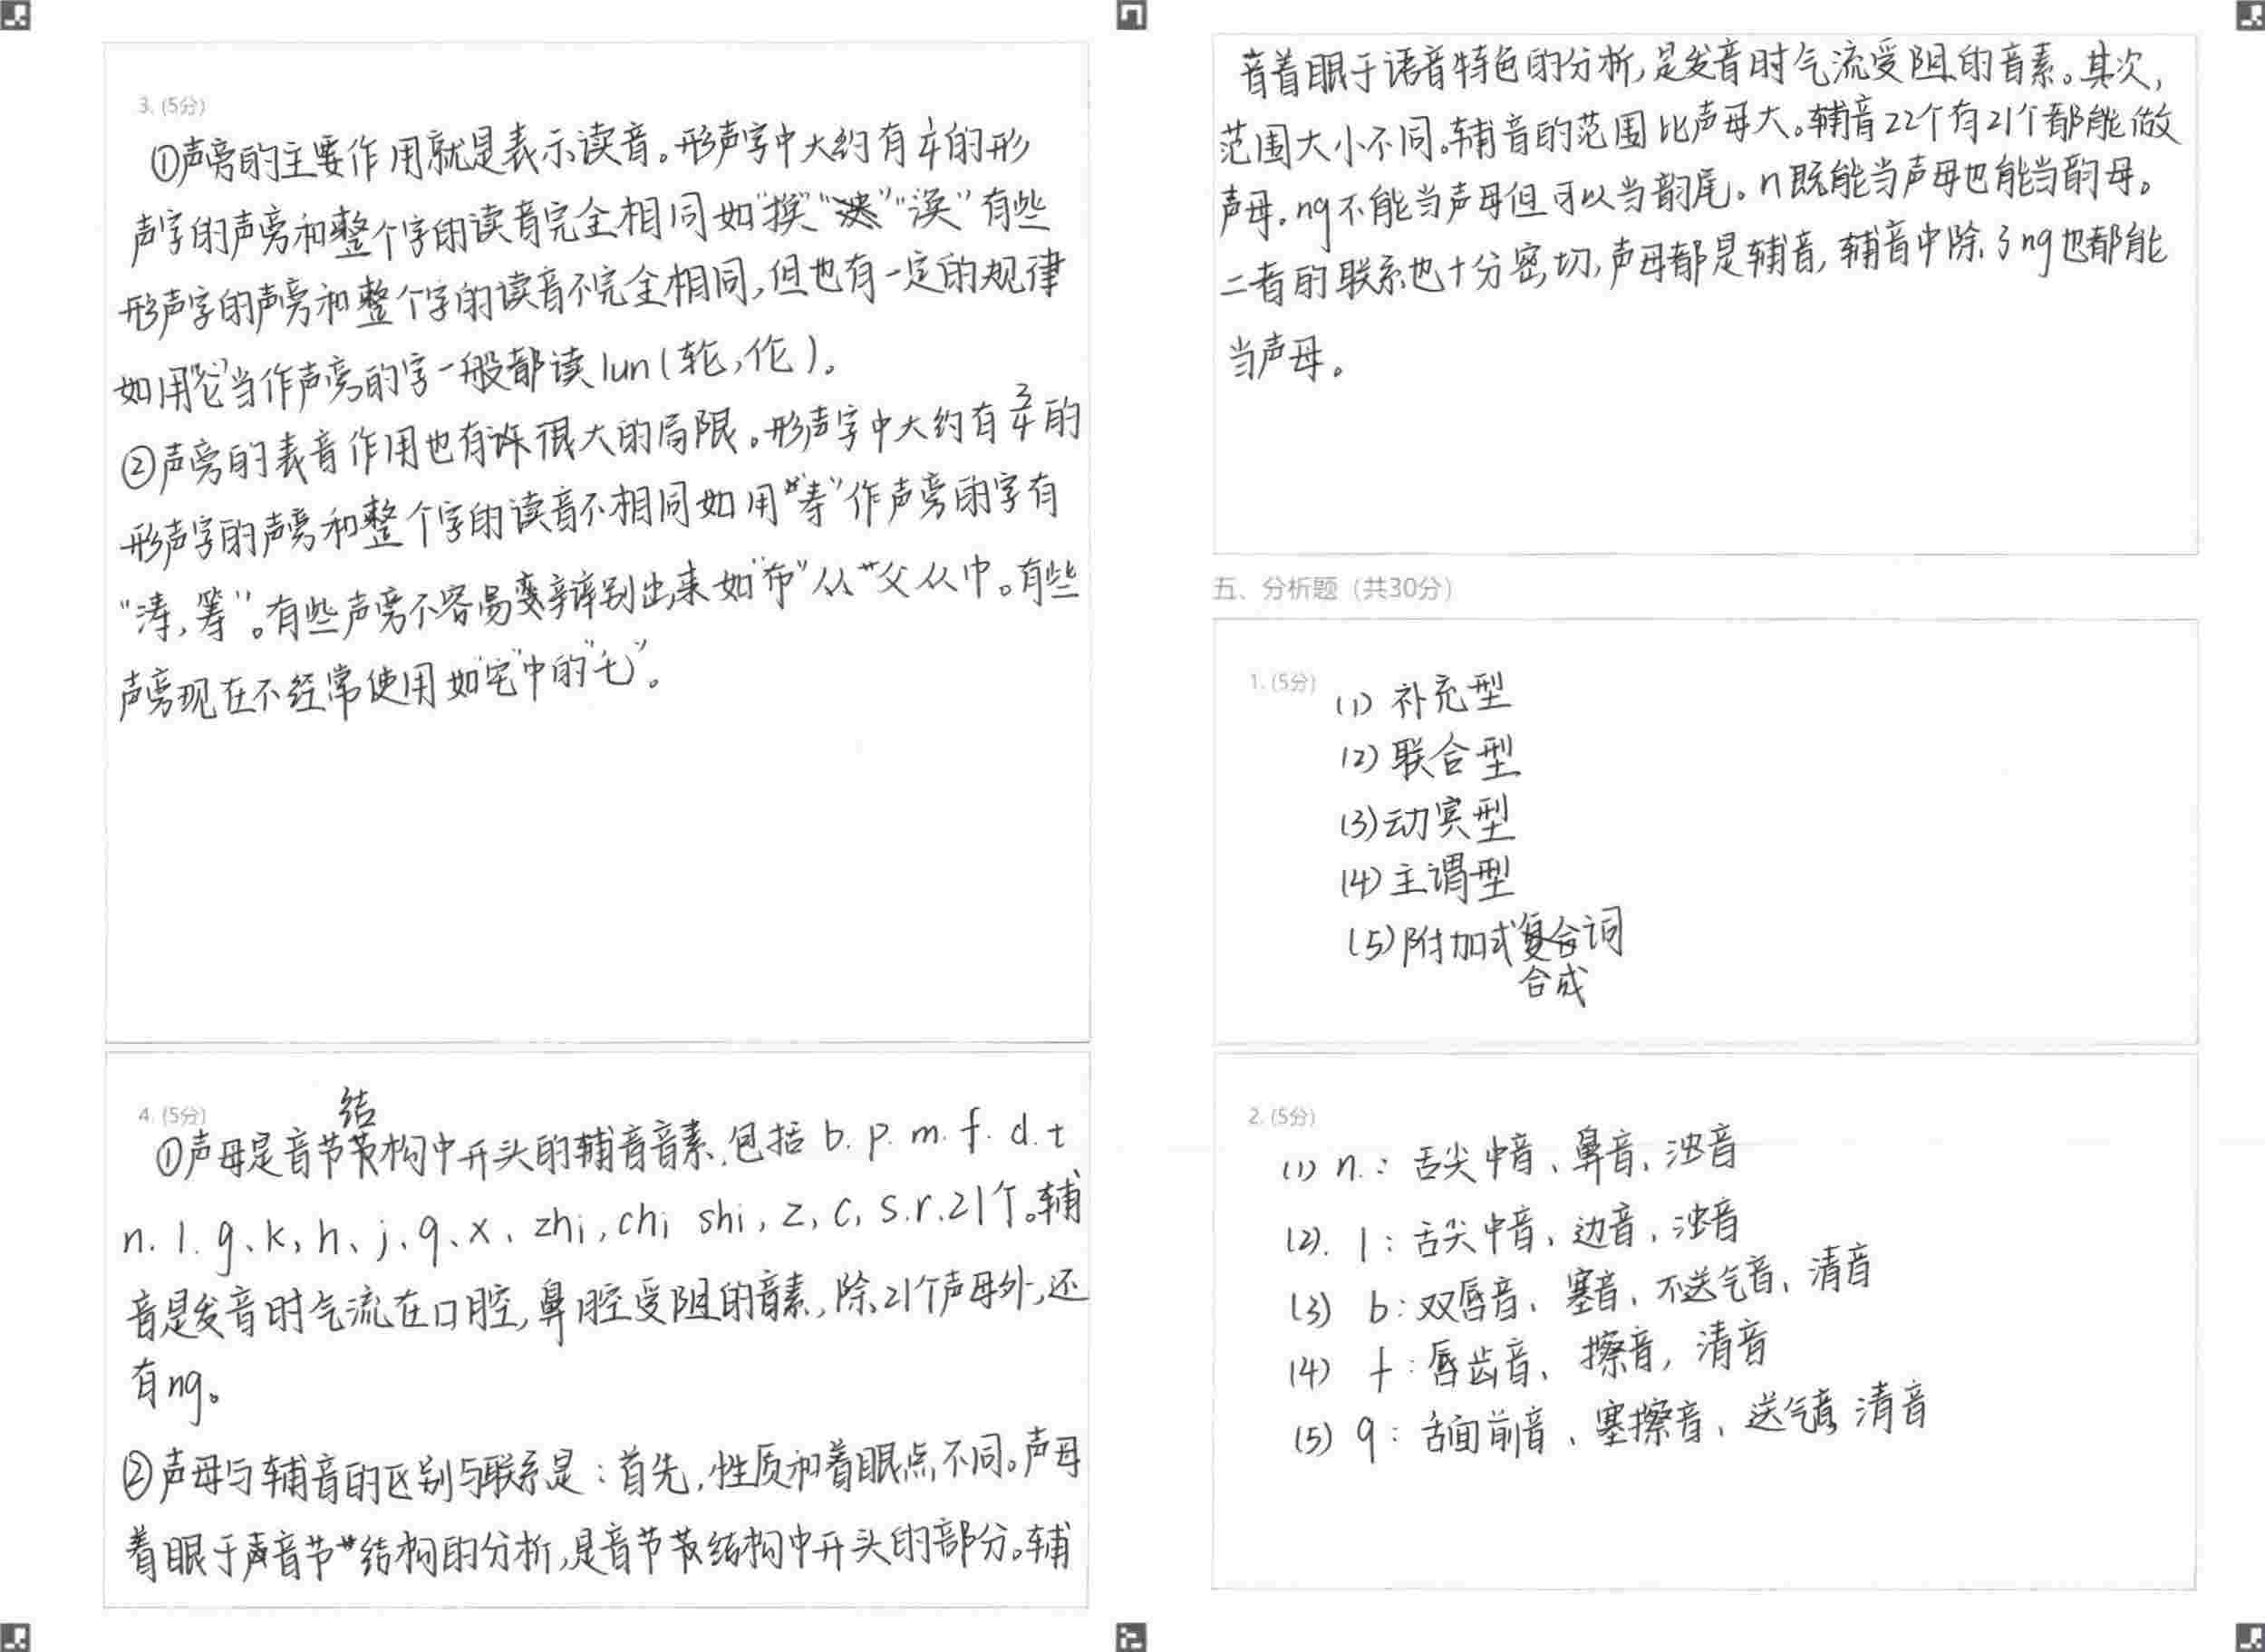 3. (5分)
①声旁的主要作用就是表示读音。形声字中大约有¼的形
声字的声旁和整个字的读音完全相同如"换""涣"有些
形声字的声旁和整个字的读音不完全相同,但也有一定的规律
如用"仑"当作声旁的字一般都读lun(轮,伦)。
②声旁的表音作用也有很大的局限。形声字中大约有¾的
形声字的声旁和整个字的读音不相同如用"寿"作声旁的字有
"涛,筹"。有些声旁不容易辨别出来如"布"从父从巾。有些
声旁现在不经常使用如"宅"中的"乇"。
4. (5分)
①声母是音节结构中开头的辅音音素,包括b.p.m.f.d.t
n.l.g、k、h、j、q、x、zhi,chi shi,z,c,s.r.21个。辅
音是发音时气流在口腔,鼻腔受阻的音素,除21个声母外,还
有ng。
②声母与辅音的区别与联系是:首先,性质和着眼点不同。声母
着眼于音节结构的分析,是音节结构中开头的部分。辅
音着眼于语音特色的分析,是发音时气流受阻的音素。其次,
范围大小不同。辅音的范围比声母大。辅音22个有21个都能做
声母。ng不能当声母但可以当韵尾。n既能当声母也能当韵母。
二者的联系也十分密切,声母都是辅音,辅音中除了ng也都能
当声母。
五、分析题(共30分)
1. (5分)
(1) 补充型
(2) 联合型
(3) 动宾型
(4) 主谓型
(5) 附加式合成词
2. (5分)
(1) n.:舌尖中音、鼻音、浊音
(2). l:舌尖中音、边音、浊音
(3) b:双唇音、塞音、不送气音、清音
(4) f:唇齿音、擦音,清音
(5) q:舌面前音、塞擦音、送气音,清音